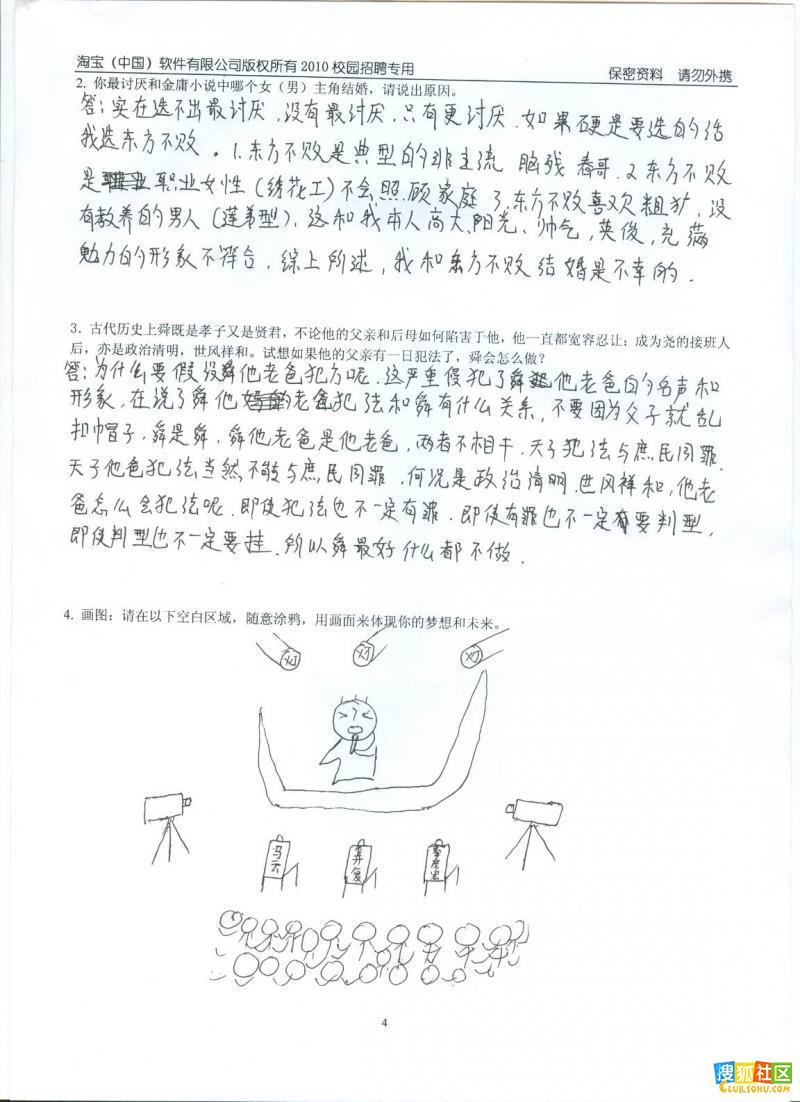 淘宝（中国）软件有限公司版权所有2010校园招聘专用
保密资料 请勿外携
2. 你最讨厌和金庸小说中哪个女（男）主角结婚，请说出原因。
答:实在选不出最讨厌,没有最讨厌,只有更讨厌.如果硬是要选的话
我选东方不败。1.东方不败是典型的非主流 脑残 春哥.2东方不败
是 职业女性(绣花工)不会照顾家庭 3,东方不败喜欢粗犷,没
有教养的男人(莲弟型),这和我本人高大、阳光、帅气,英俊,充满
魅力的形象不符合,综上所述,我和东方不败结婚是不幸的.
3. 古代历史上舜既是孝子又是贤君，不论他的父亲和后母如何陷害于他，他一直都宽容忍让；成为尧的接班人
后，亦是政治清明，世风祥和。试想如果他的父亲有一日犯法了，舜会怎么做？
答:为什么要假设舜他老爸犯方呢.这严重侵犯了舜 他老爸的名声和
形象,在说了舜他 老爸犯法和舜有什么关系,不要因为父子就乱
扣帽子,舜是舜,舜他老爸是他老爸,两者不相干.天子犯法与庶民同罪.
天子他爸犯法当然不能与庶民同罪.何况是政治清明.世风祥和,他老
爸怎么会犯法呢.即使犯法也不一定有罪.即使有罪也不一定要判型,
即使判型也不一定要挂.所以舜最好什么都不做.
4. 画图：请在以下空白区域，随意涂鸦，用画面来体现你的梦想和未来。
灯
灯
灯
马云
4
搜狐社区
CLUB.SOHU.COM